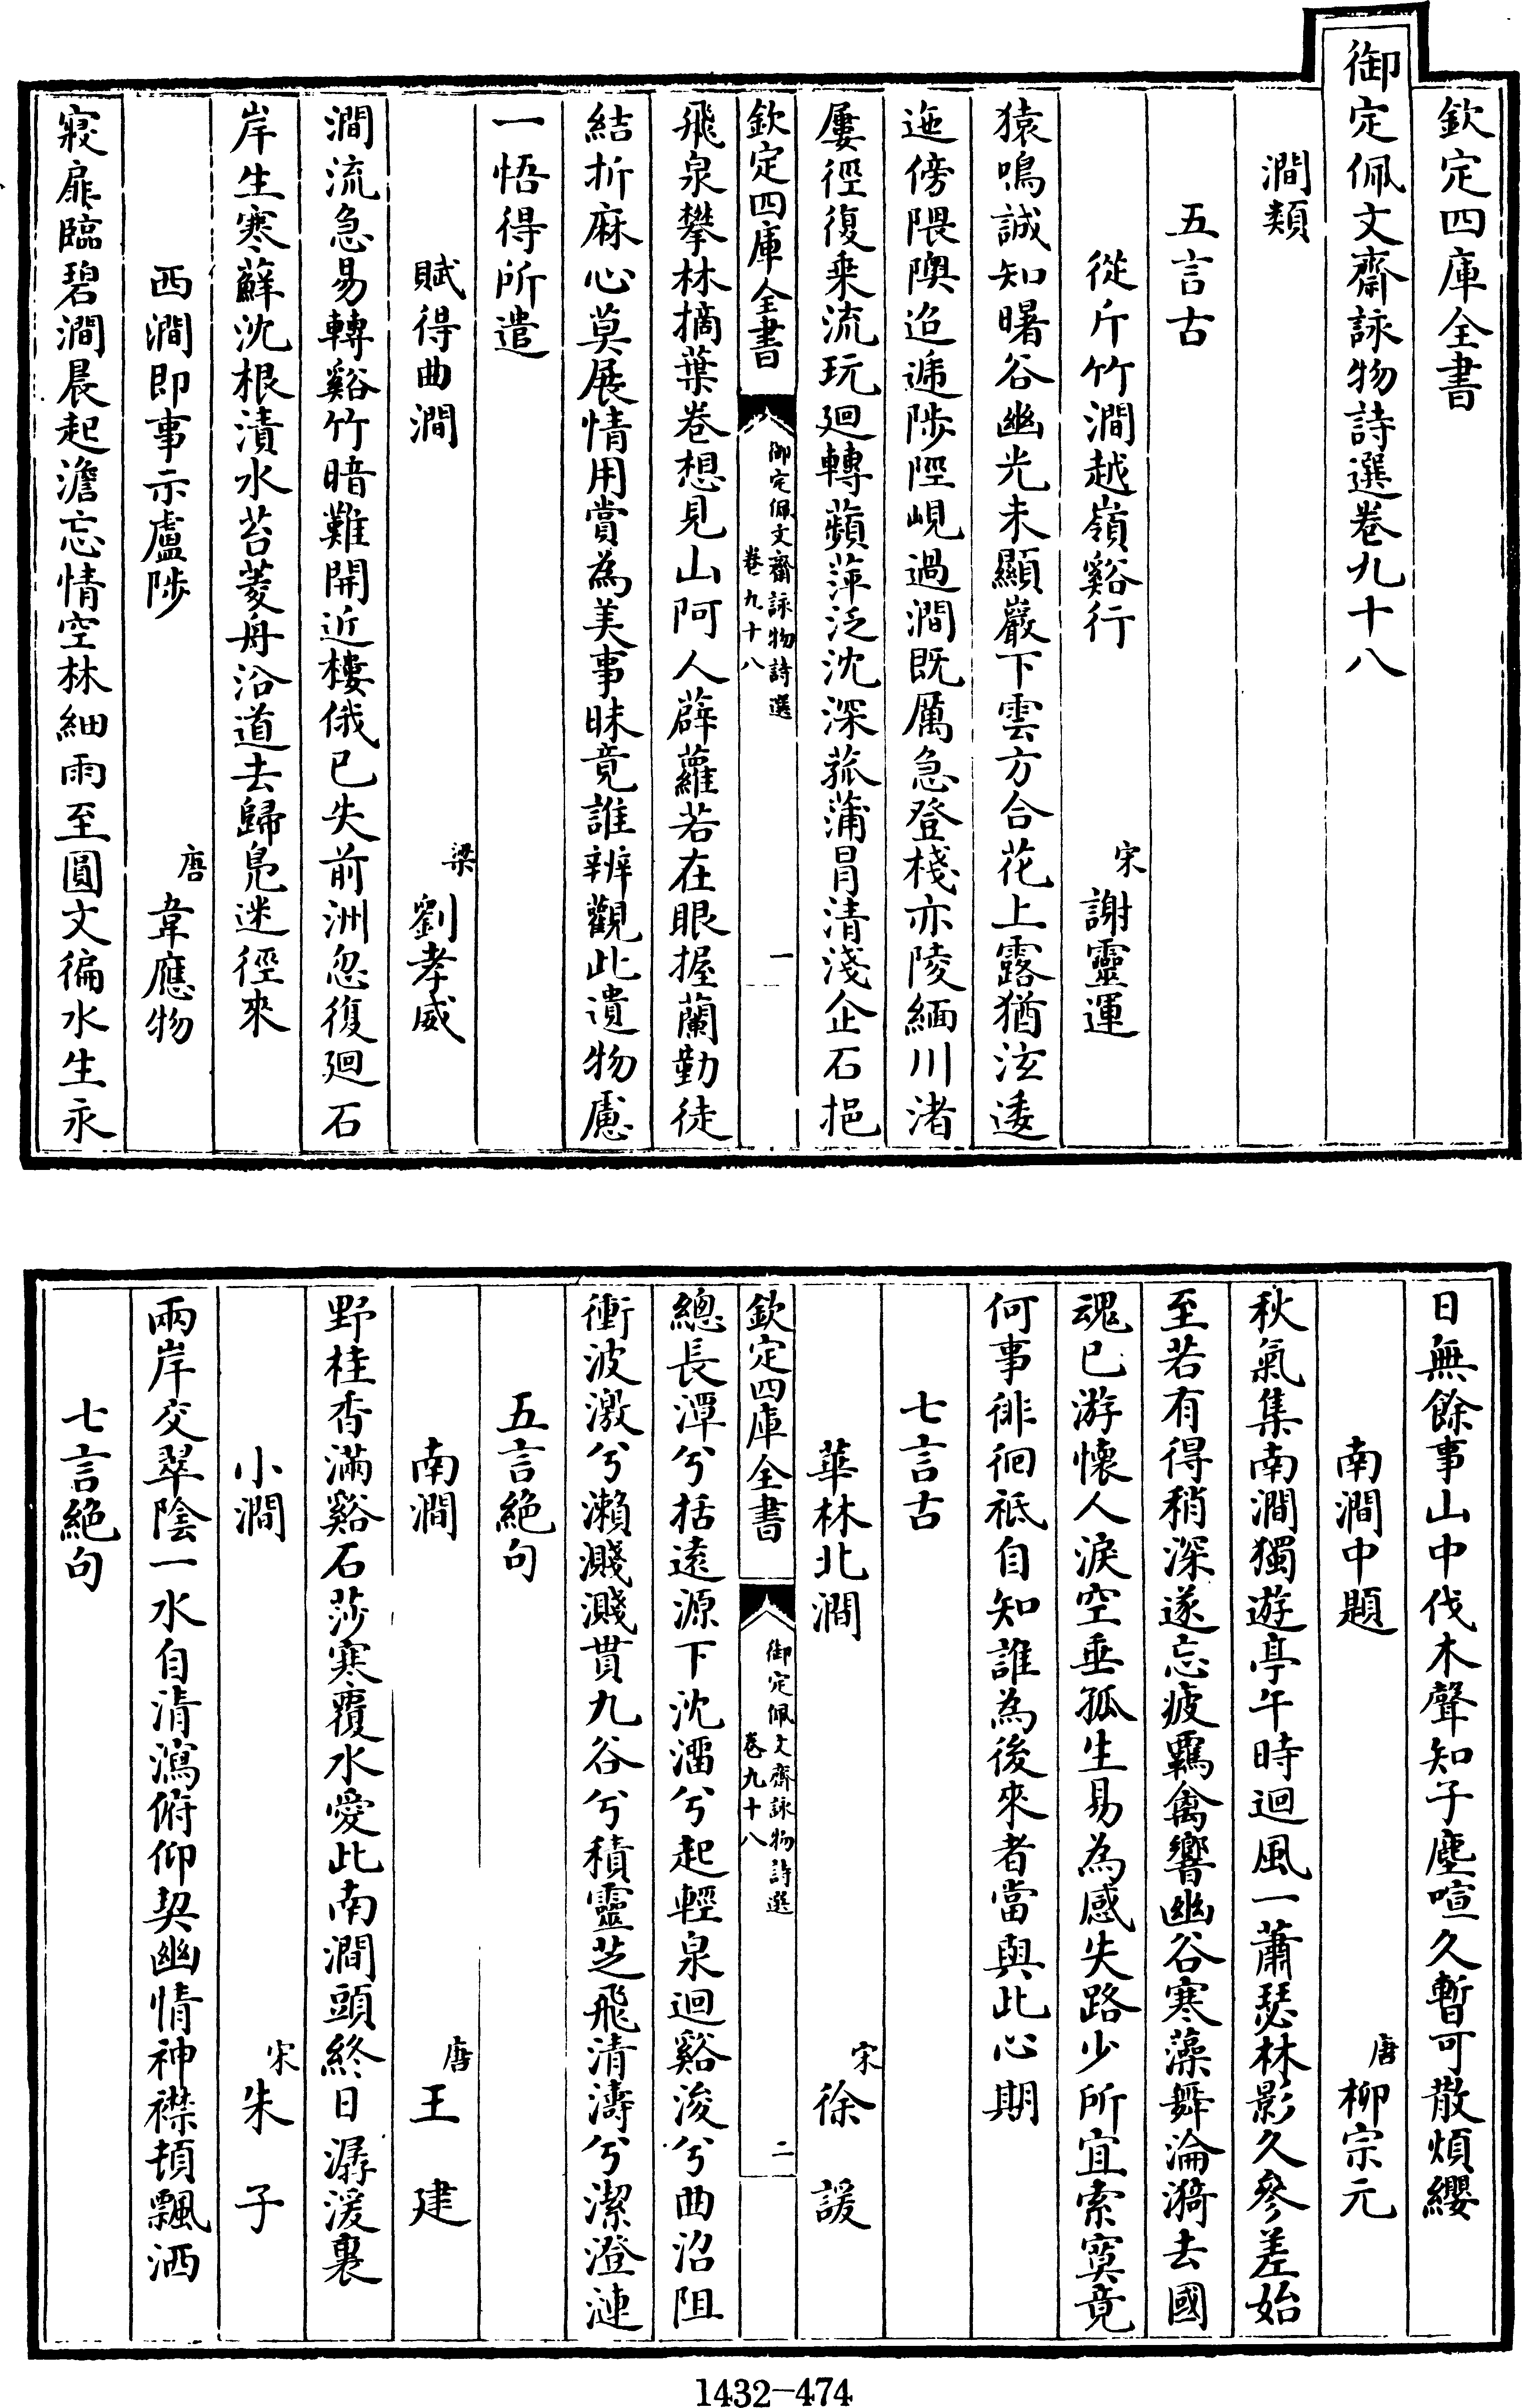 欽定四庫全書
御定佩文齋詠物詩選卷九十八
澗類
五言古
從斤竹澗越嶺谿行 宋 謝靈運
猿鳴誠知曙谷幽光未顯巖下雲方合花上露猶泫逶
迤傍隈隩迢遞陟陘峴過澗既厲急登棧亦陵緬川渚
屢徑復乗流玩廻轉蘋萍泛沈深菰蒲冒清淺企石挹
欽定四庫全書 御定佩文齋詠物詩選 卷九十八 一
飛泉攀林摘葉卷想見山阿人薜蘿若在眼握蘭勤徒
結折麻心莫展情用賞為美事昧竟誰辨觀此遺物慮
一悟得所遣
賦得曲澗 梁 劉孝威
澗流急易轉谿竹暗難開近樓俄已失前洲忽復廻石
岸生寒蘚沈根漬水苔菱舟沿道去歸鳧迷徑來
西澗即事示盧陟 唐 韋應物
寢扉臨碧澗晨起澹忘情空林細雨至圓文徧水生永
日無餘事山中伐木聲知子塵喧久暫可散煩纓
南澗中題 唐 柳宗元
秋氣集南澗獨遊亭午時迴風一蕭瑟林影久參差始
至若有得稍深遂忘疲羈禽響幽谷寒藻舞淪漪去國
魂已游懷人淚空垂孤生易為感失路少所宜索寞竟
何事徘徊祇自知誰為後來者當與此心期
七言古
華林北澗 宋 徐諼
欽定四庫全書 御定佩文齋詠物詩選 卷九十八 二
總長潭兮括遠源下沈潘兮起輕泉迴谿浚兮曲沼阻
衝波激兮瀨濺濺貫九谷兮積靈芝飛清濤兮潔澄漣
五言絕句
南澗 唐 王建
野桂香滿谿石莎寒覆水愛此南澗頭終日潺湲裏
小澗 宋 朱子
兩岸交翠陰一水自清瀉俯仰契幽情神襟頓飄洒
七言絕句
1432-474